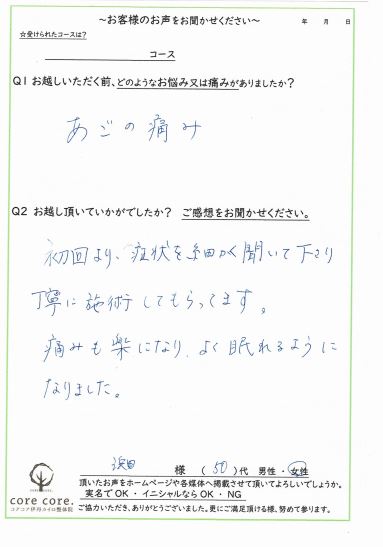 ～お客様のお声をお聞かせください～
年 月 日
☆受けられたコースは?
コース
Q1 お越しいただく前、どのようなお悩み又は痛みがありましたか?
あごの痛み
Q2 お越し頂いていかがでしたか? ご感想をお聞かせください。
初回より、症状を細かく聞いて下さり
丁寧に施術してもらってます。
痛みも楽になり、よく眠れるように
なりました。
浜田 様 (50)代 男性・女性
頂いたお声をホームページや各媒体へ掲載させて頂いてよろしいでしょうか。
実名でOK・イニシャルならOK・NG
ご協力いただき、ありがとうございました。更にご満足頂ける様、努めて参ります。
core core.
コアコア伊丹カイロ整体院